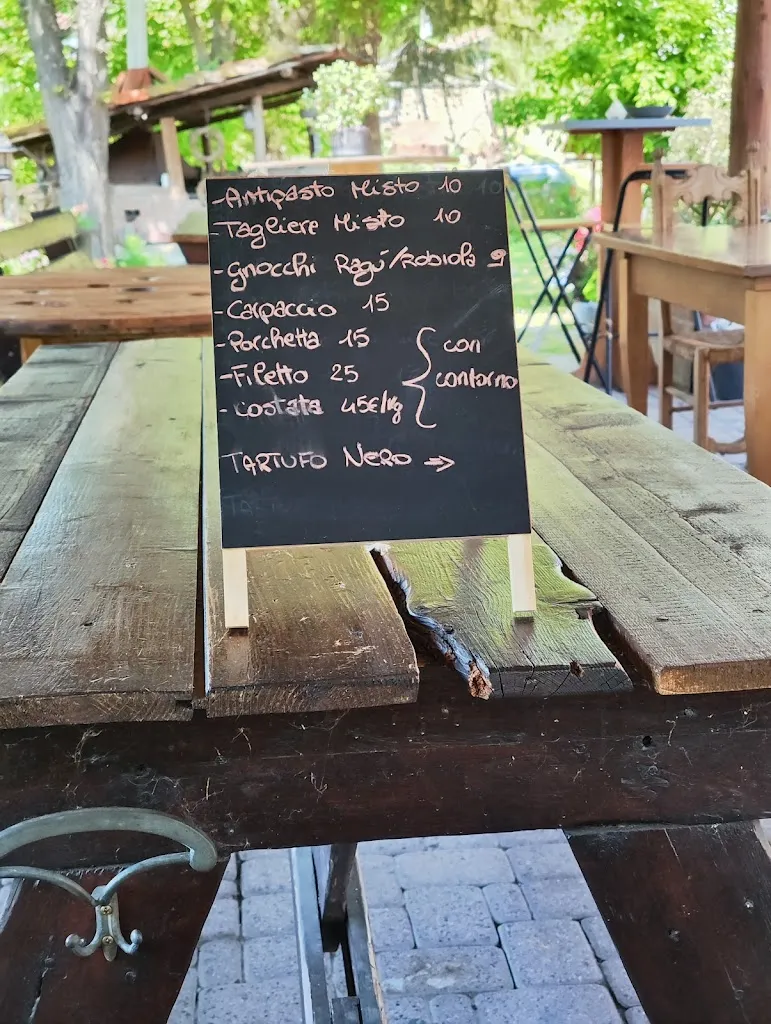 -Antipasto Misto 10
-Tagliere Misto 10
-Gnocchi Ragú/Robiola 9
-Carpaccio 15
-Porchetta 15
-Filetto 25
-Costata 45€/kg
con
contorno
TARTUFO NERO →